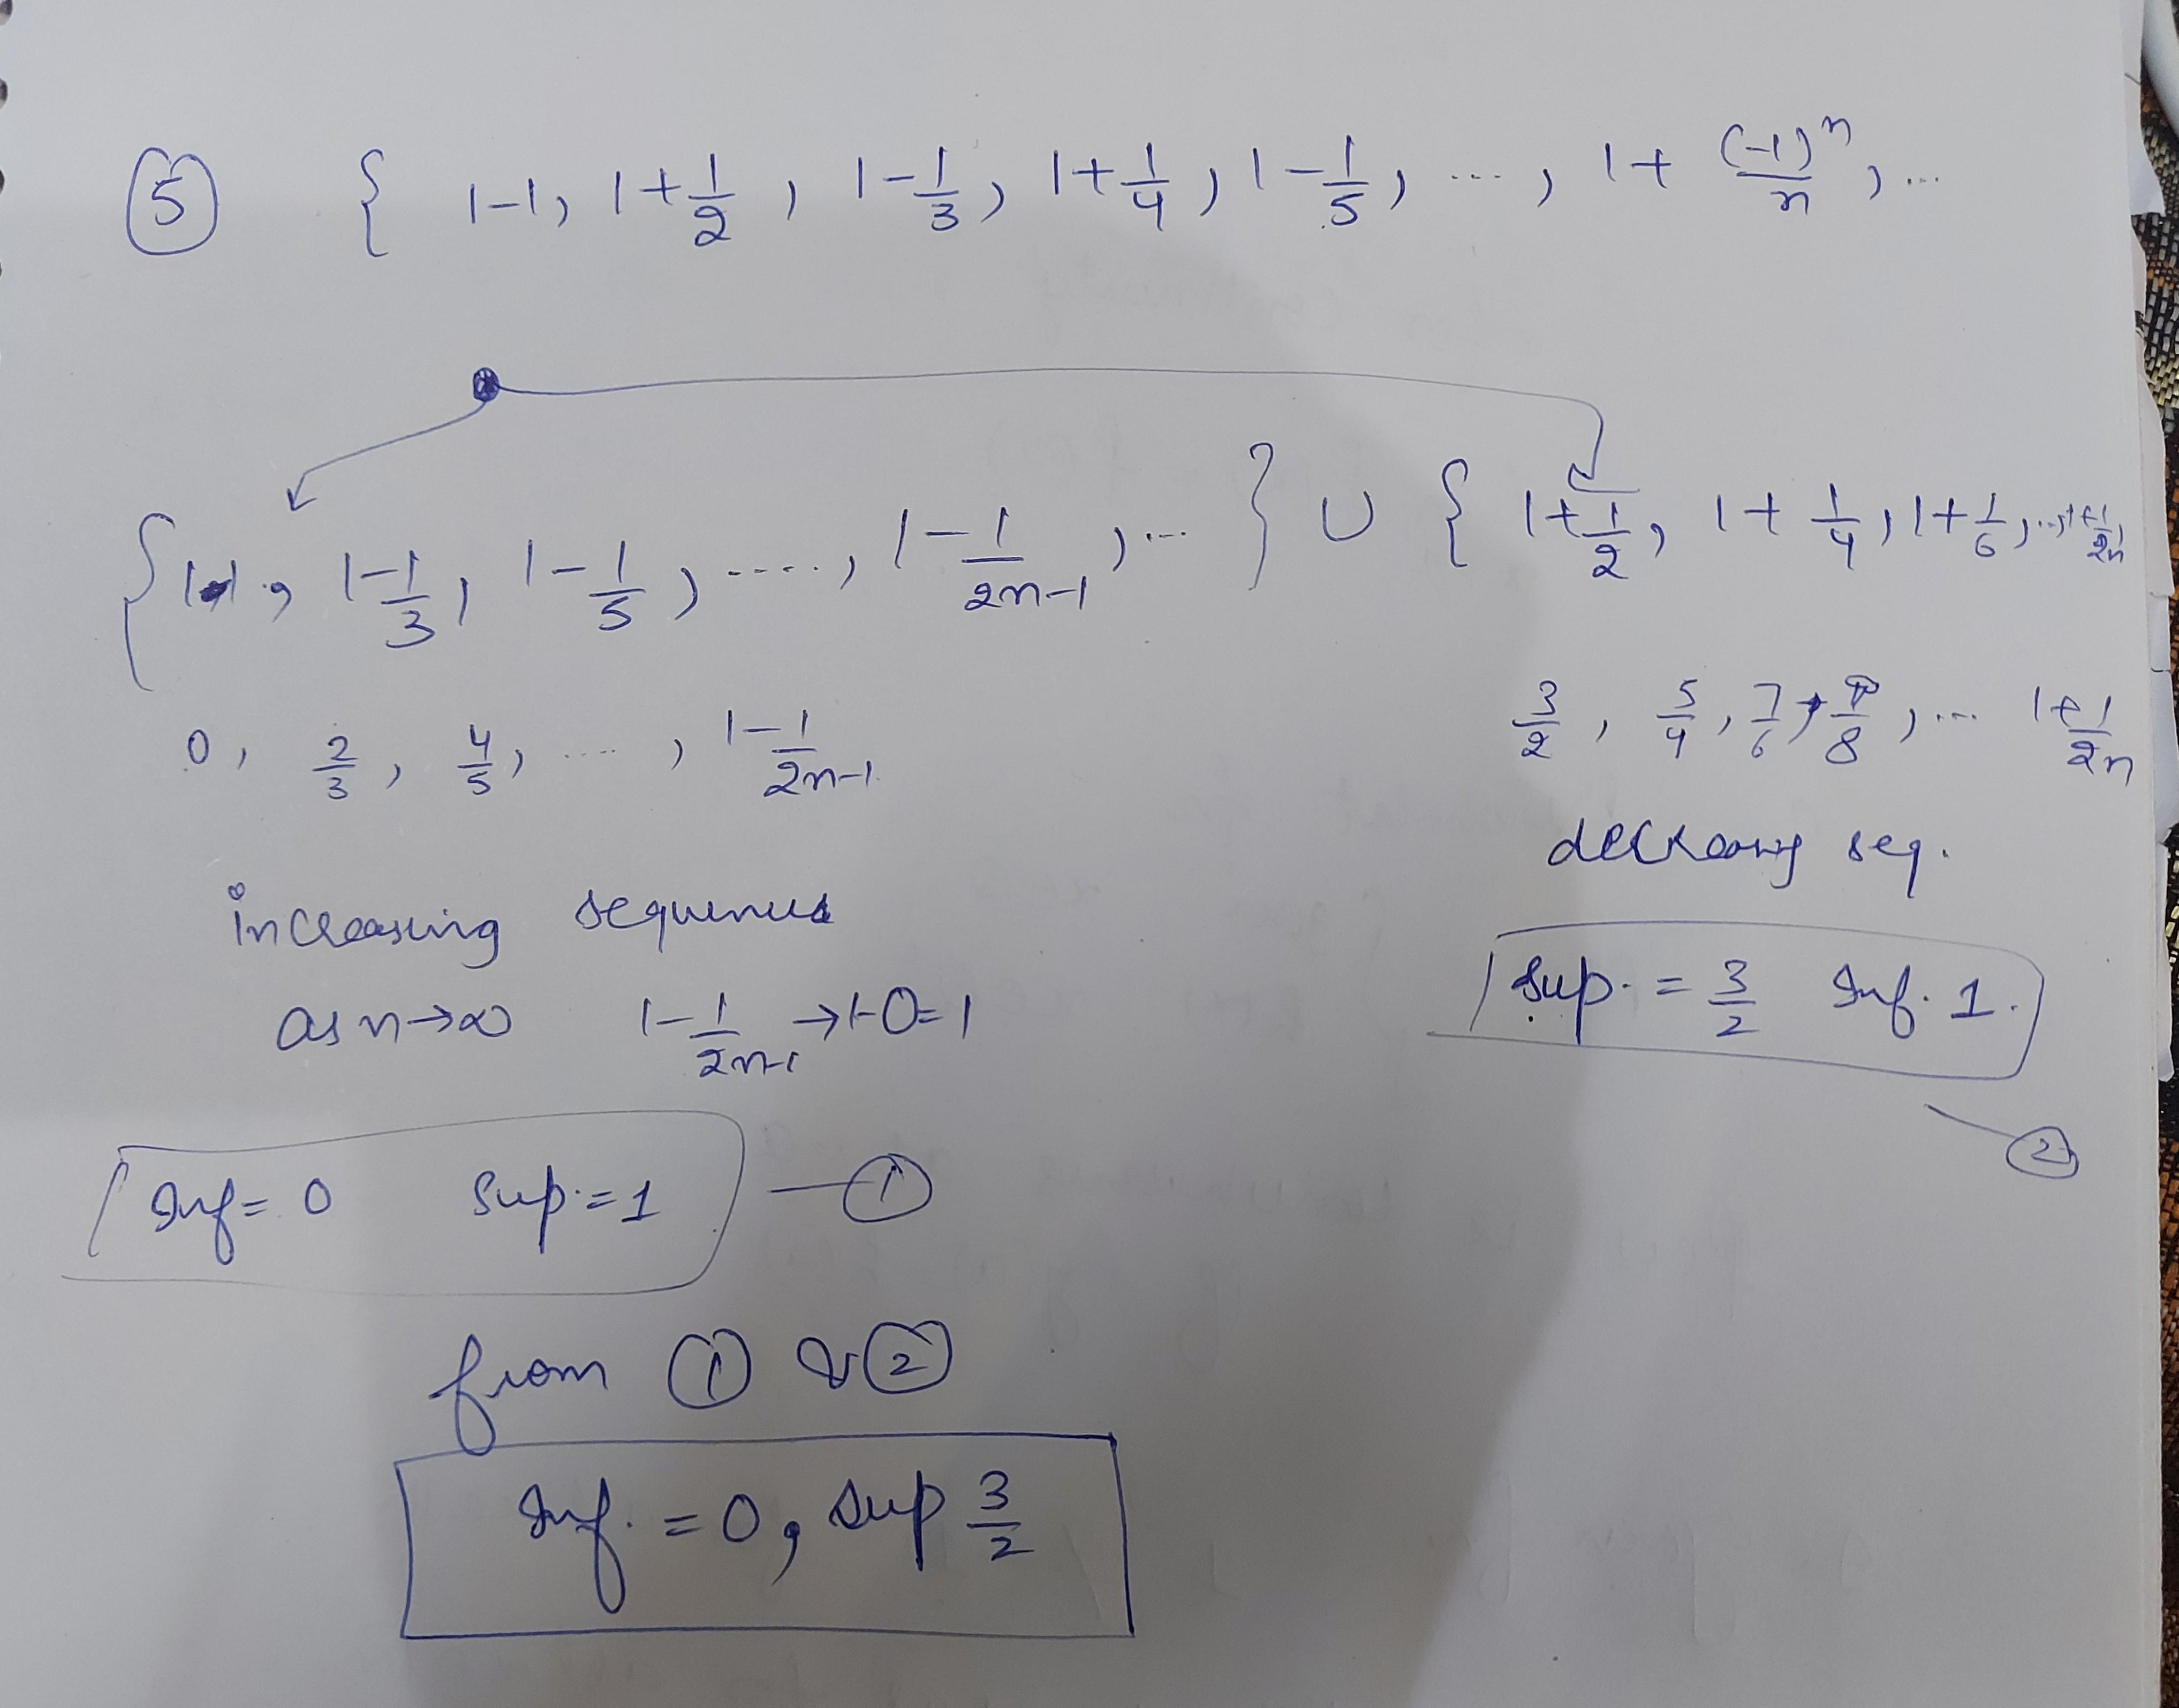 ⑤ { 1-1, 1+1/2, 1-1/3, 1+1/4, 1-1/5, ..., 1+(-1)^n/n, ...
{1-1, 1-1/3, 1-1/5, ....., 1-1/2n-1, ... } ∪ { 1+1/2, 1+1/4, 1+1/6, ..., 1+1/2n
0, 2/3, 4/5, ....., 1-1/2n-1
3/2, 5/4, 7/6, /8, ... 1+1/2n
seq.
increasing
as n→∞ 1-1/2n-1 →1-0=1
Sup. = 3/2 Inf. 1.
②
Inf= 0 Sup.=1 — ①
from ① & ②
Inf. = 0, Sup 3/2